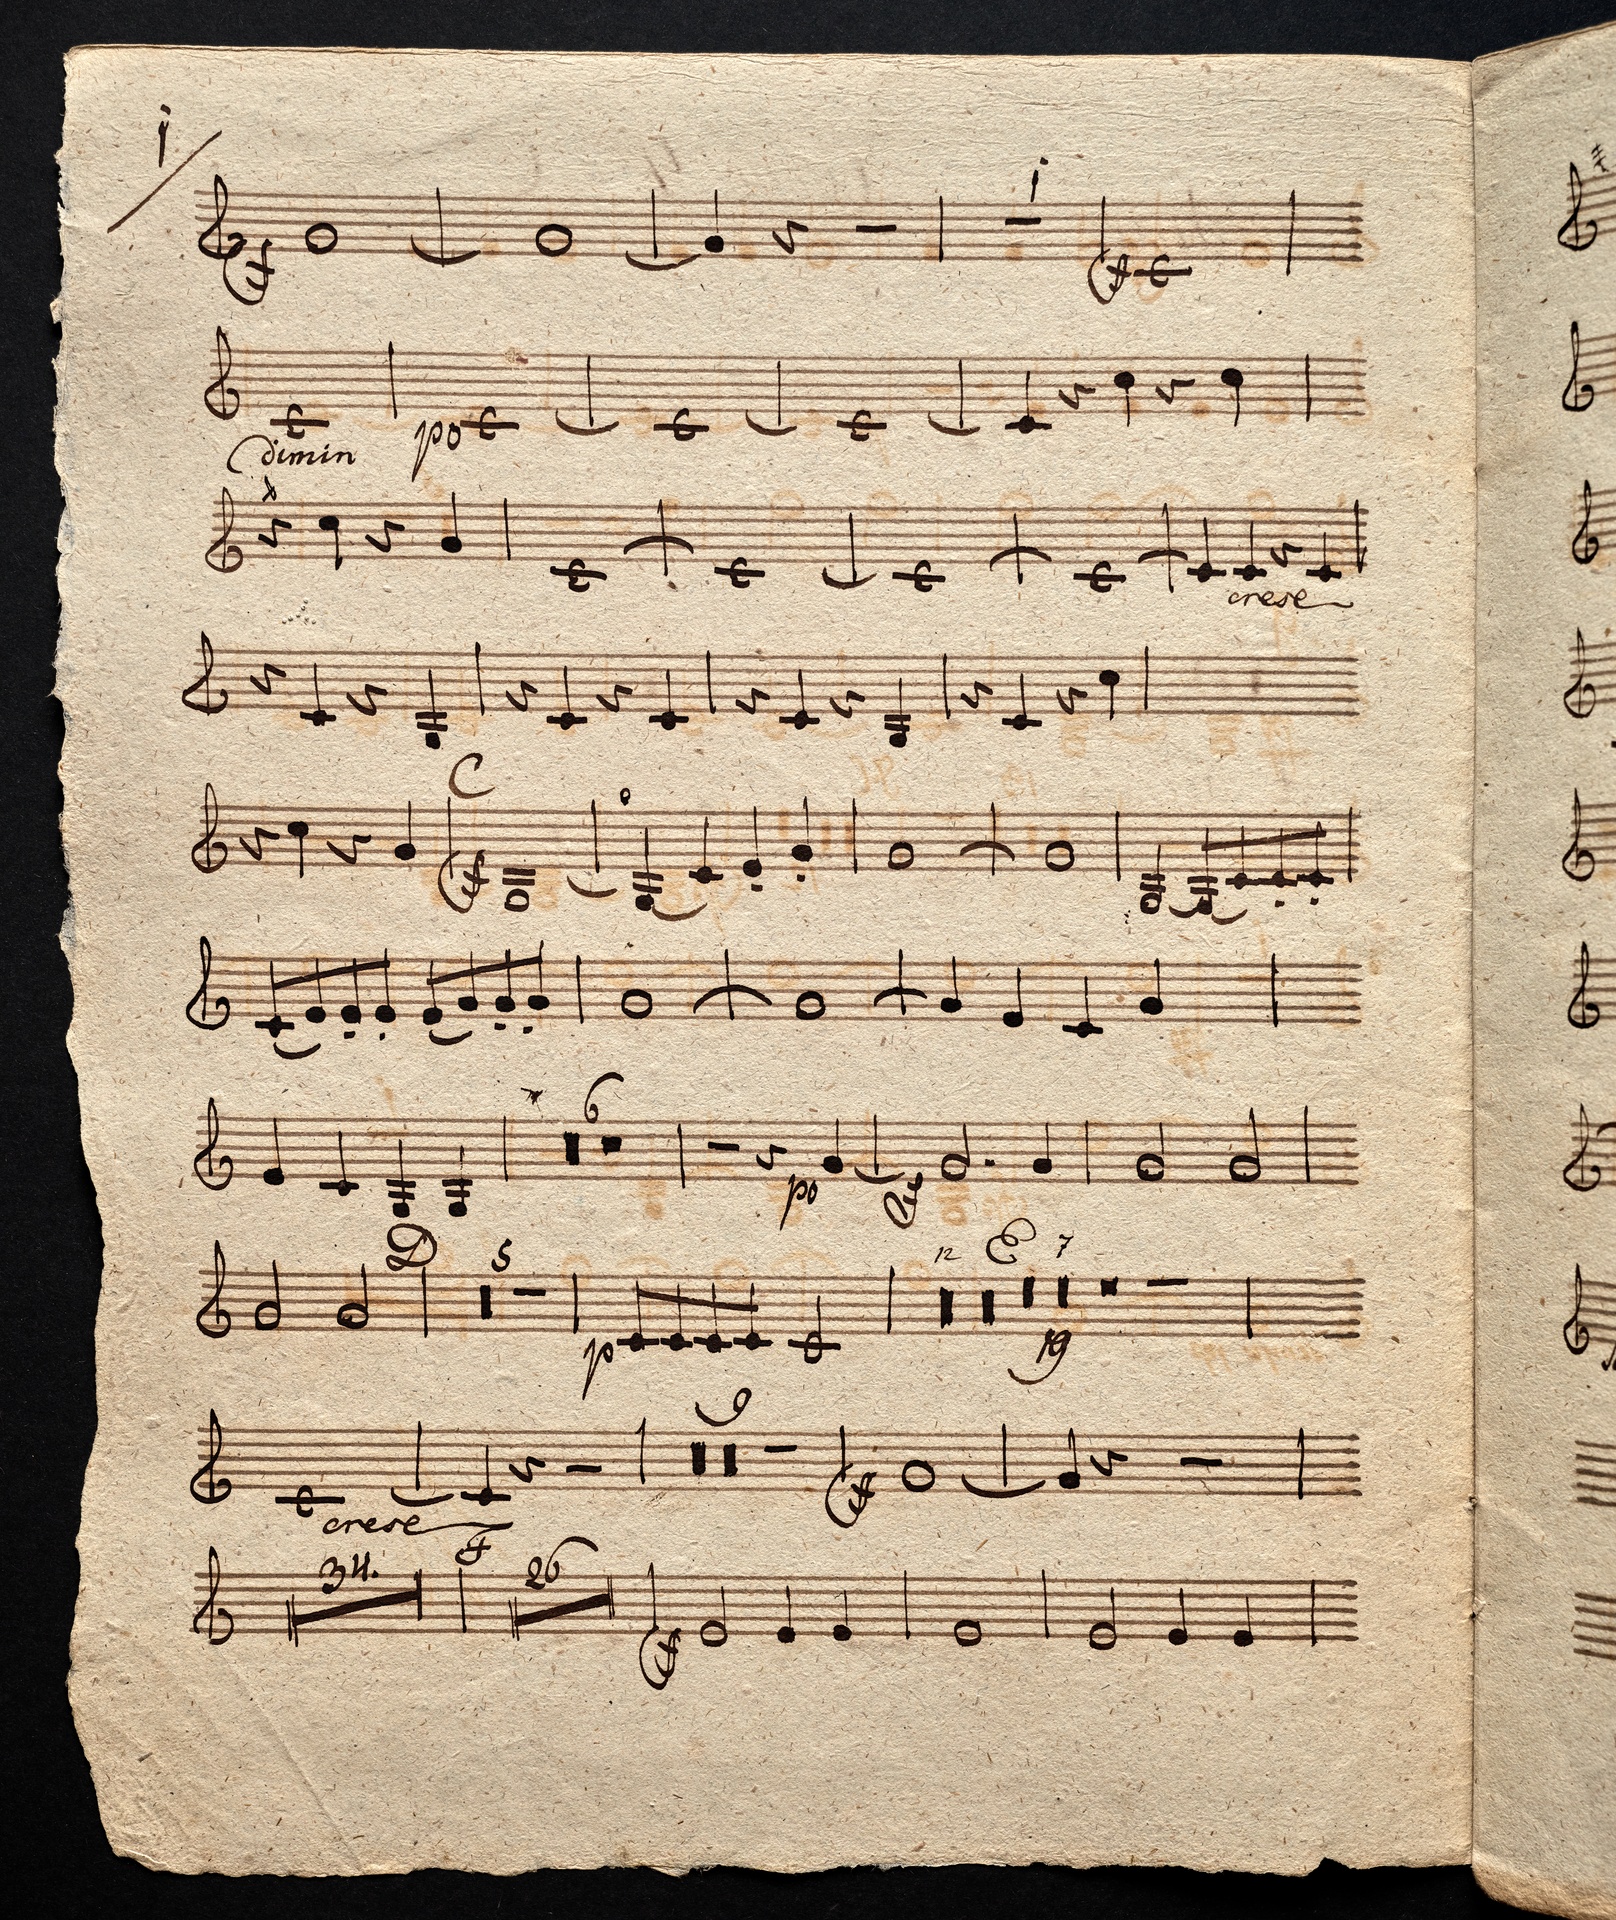 i
i
dimin po
cresc
C
6
po
D 5 12 E 7
p 19
9
cresc
34. F 26